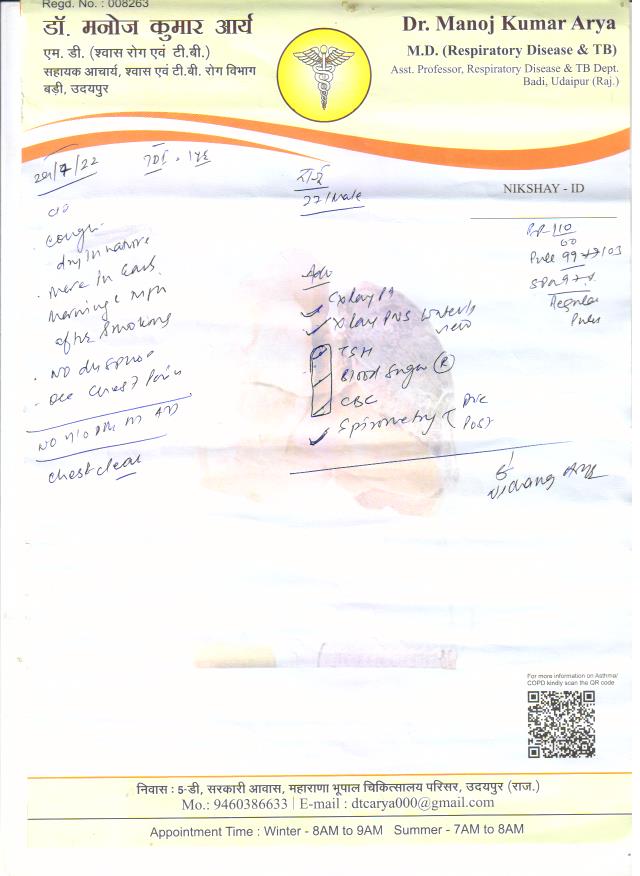 Regd. No. : 008263
डॉ. मनोज कुमार आर्य
एम. डी. (श्वास रोग एवं टी.बी.)
सहायक आचार्य, श्वास एवं टी.बी. रोग विभाग
बड़ी, उदयपुर
Dr. Manoj Kumar Arya
M.D. (Respiratory Disease & TB)
Asst. Professor, Respiratory Disease & TB Dept.
Badi, Udaipur (Raj.)
NIKSHAY - ID
/7/22
27/Male
c/o
cough
dry in nature
more in early
morning
after smoking
NO
occ chest pain
chest clear
BP-110
60
SPO2 97%
Regular
Pulse
Adv
CXray PA
Xray PNS water's
view
TSH
Blood sugar (R)
CBC
Spirometry
Pre
Post
For more information on Asthma/
COPD kindly scan the QR code
निवास : 5-डी, सरकारी आवास, महाराणा भूपाल चिकित्सालय परिसर, उदयपुर (राज.)
Mo.: 9460386633 | E-mail : dtcarya000@gmail.com
Appointment Time : Winter - 8AM to 9AM Summer - 7AM to 8AM